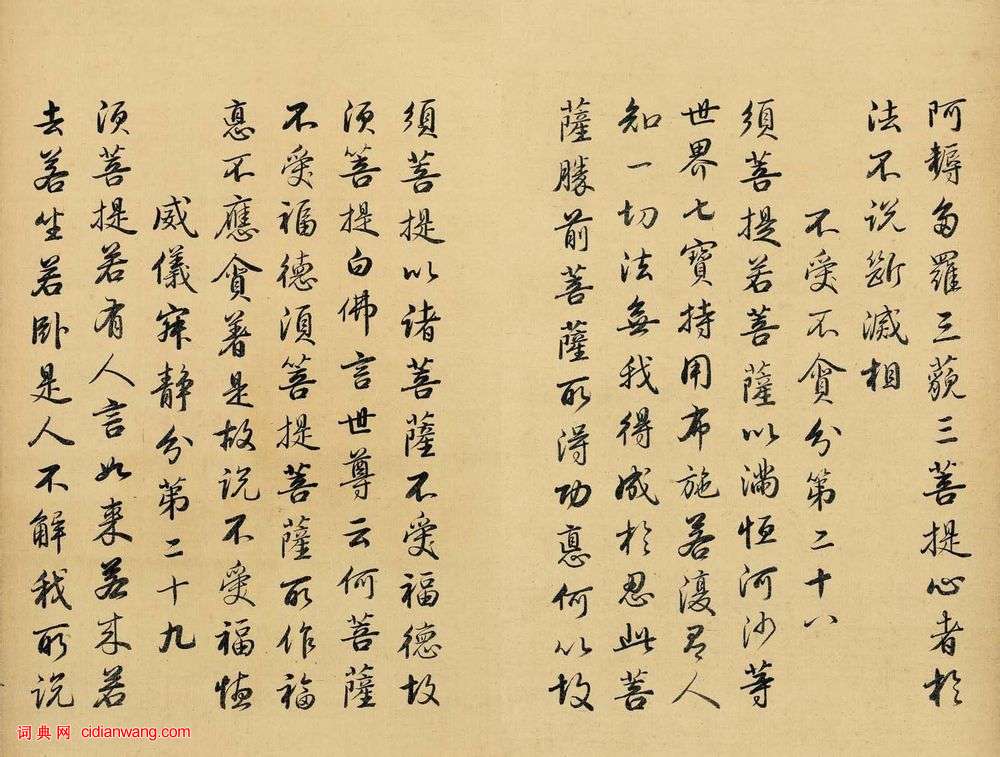 阿耨多羅三藐三菩提心者於
法不说斷滅相
不受不貪分第二十八
須菩提若菩薩以滿恒河沙等
世界七寶持用布施若復有人
知一切法無我得成於忍此菩
薩勝前菩薩所得功惪何以故
須菩提以诸菩薩不受福德故
须菩提白佛言世尊云何菩薩
不受福德须菩提菩薩所作福
惪不應貪著是故说不受福徳
威儀寂靜分第二十九
须菩提若有人言如来若来若
去若坐若卧是人不解我所说
词典网 cidianwang.com